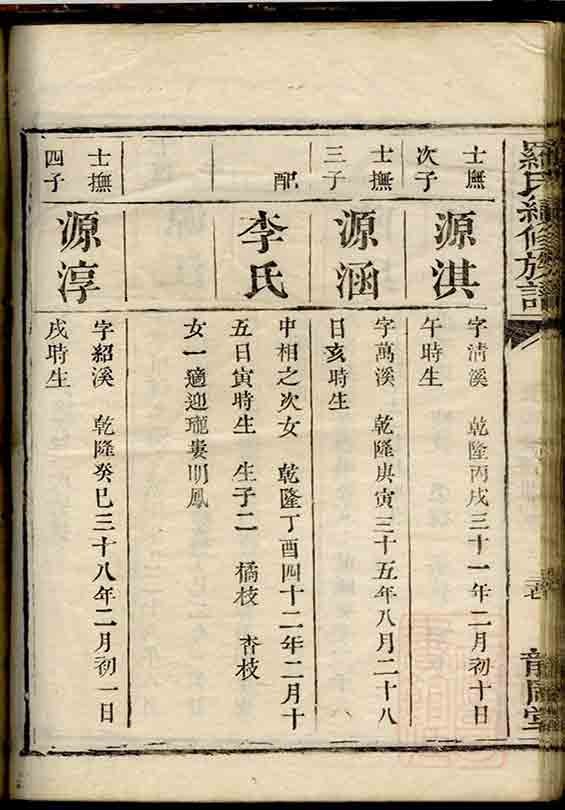 羅氏續修族譜
士廡
次子
源淇
字清溪 乾隆丙戌三十一年二月初十日
午時生
士撫
三子
源涵
字萬溪 乾隆庚寅三十五年八月二十八
日亥時生
配
李氏
中相之次女 乾隆丁酉四十二年二月十
五日寅時生 生子二 橘枝 杏枝
女一適迎瓏婁明鳳
士撫
四子
源淳
字紹溪 乾隆癸巳三十八年二月初一日
戌時生